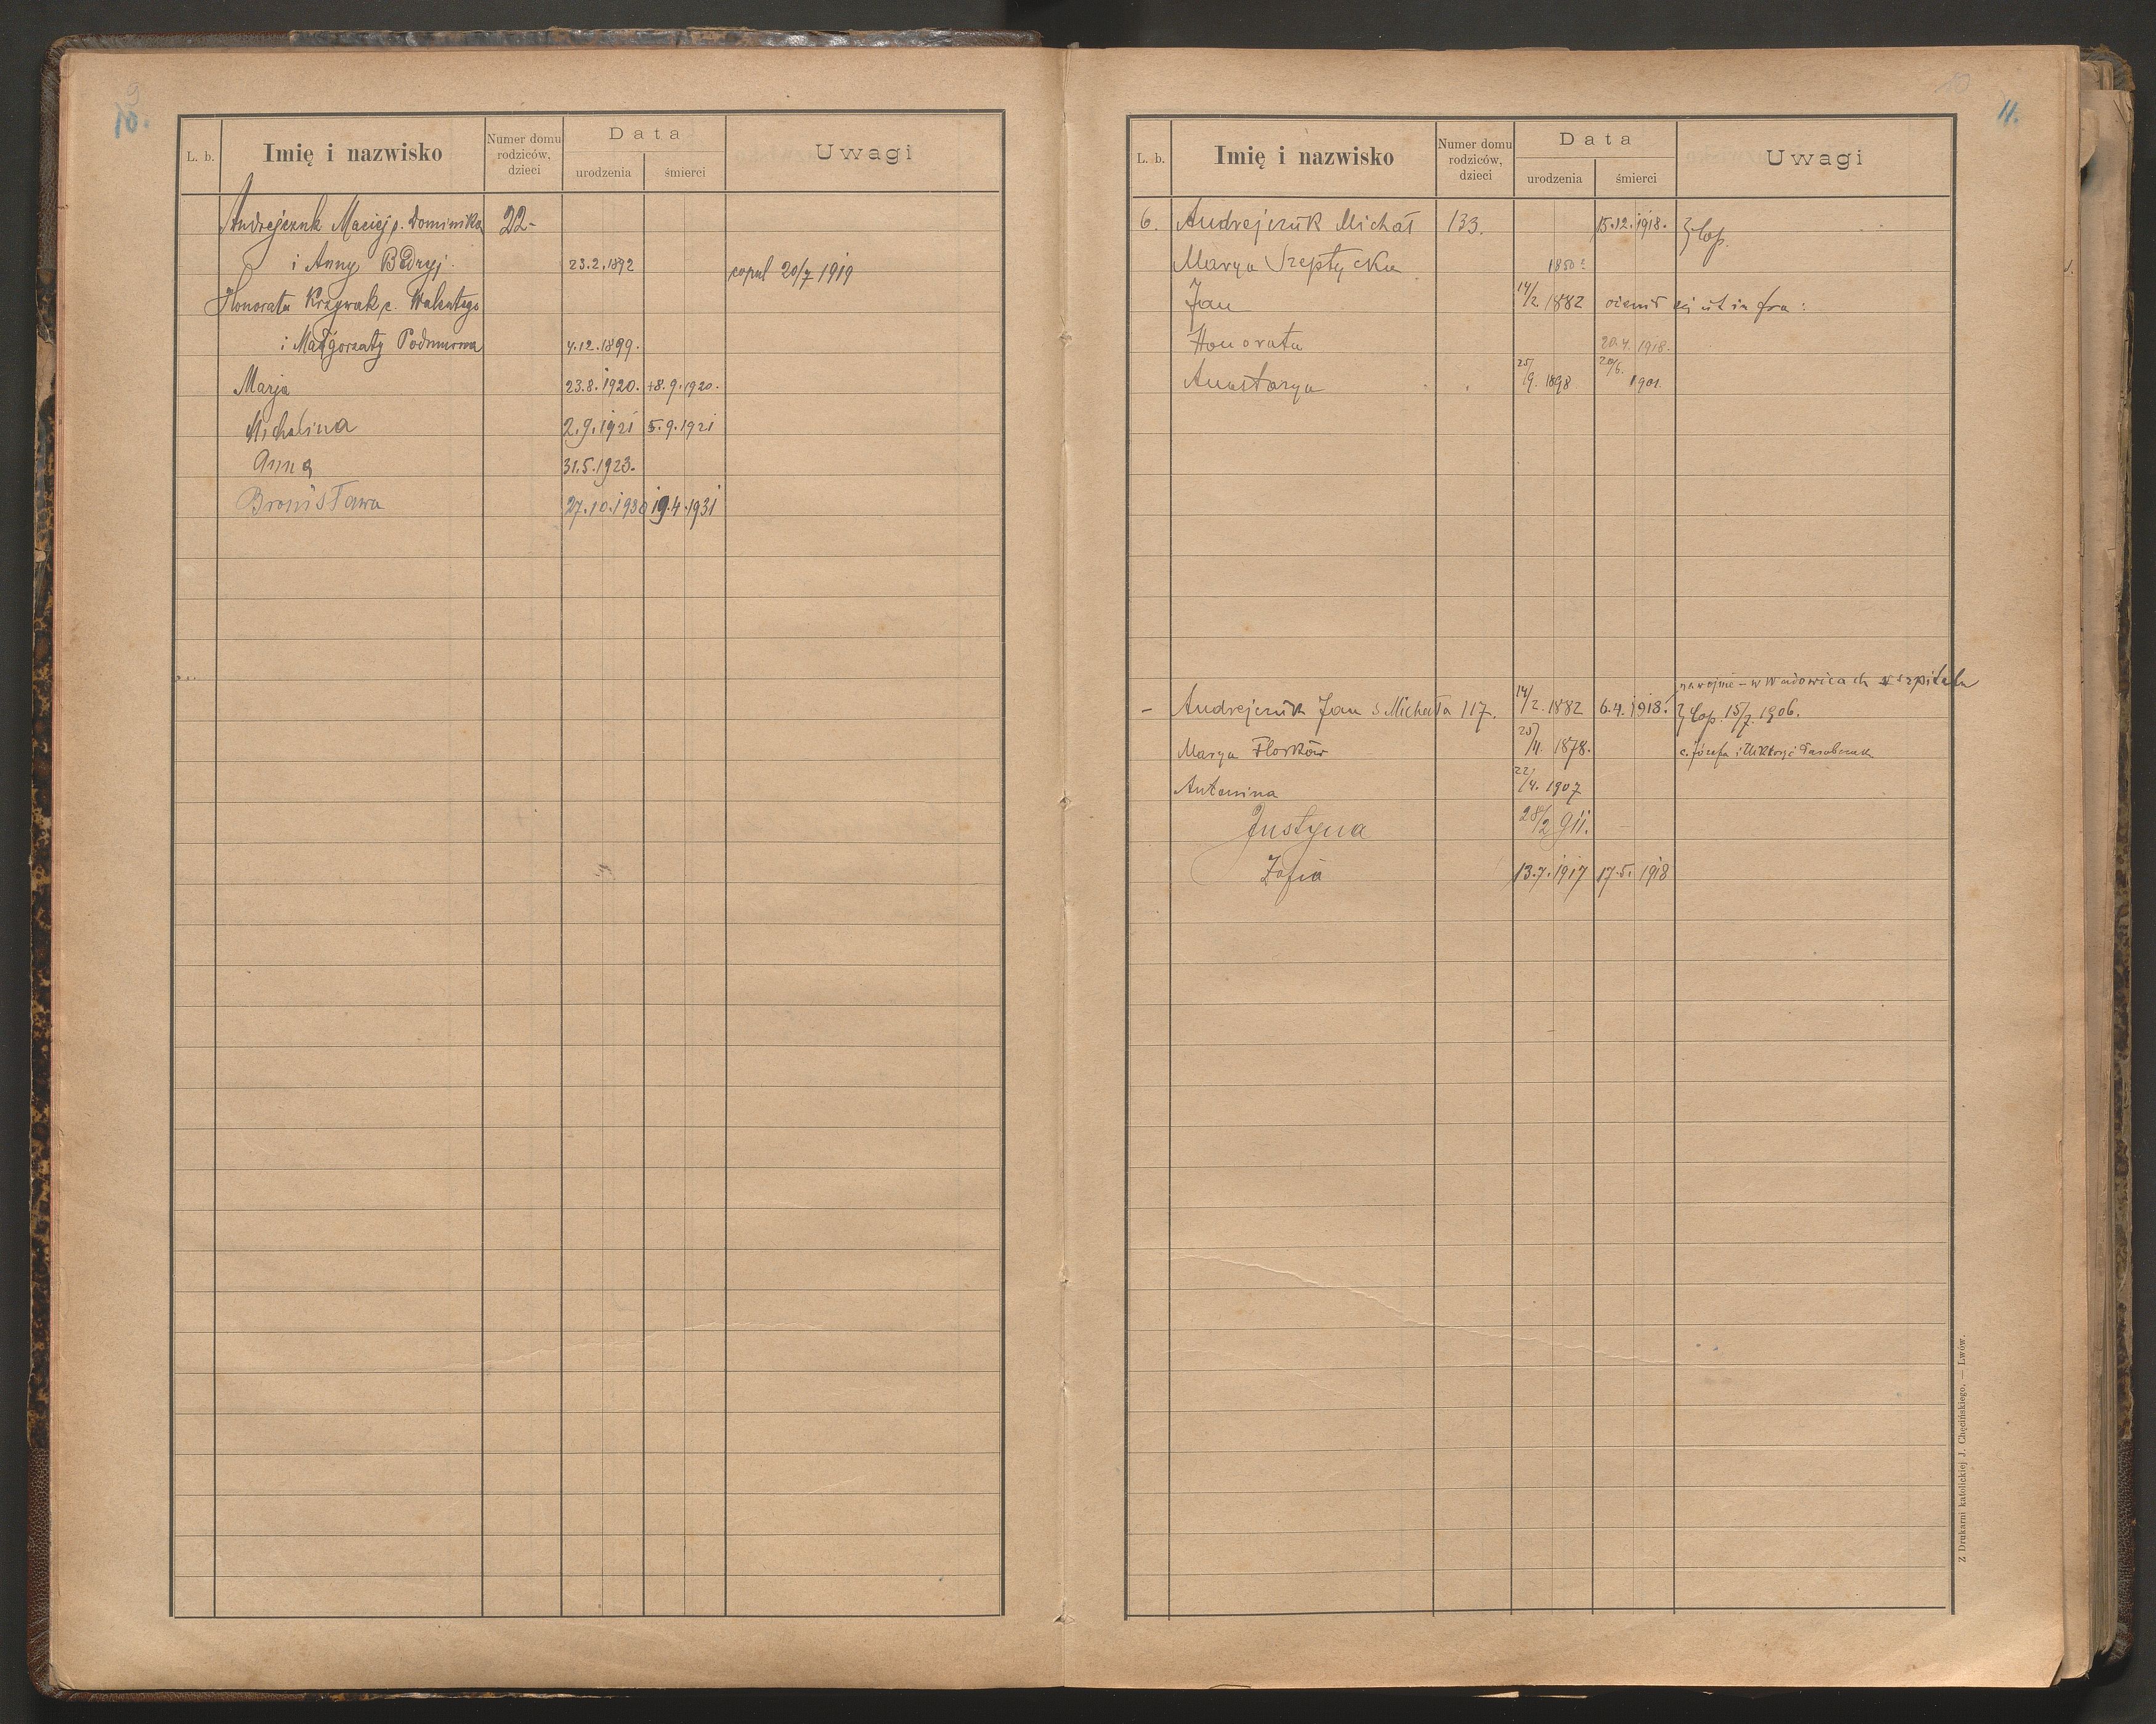 9
10.
L. b.
Imię i nazwisko
Numer domu rodziców, dzieci
Data
urodzenia
śmierci
Uwagi
Andrejczuk Maciej s. Dominika 22-
i Anny Bedryj 23.2.1892 copul 20/7 1919
Honorata Krzywak c. Walentego
i Małgorzaty 4.12.1899.
Marja 23.8.1920. +8.9.1920.
Michalina 2.9.1921 5.9.1921
Anna 31.5.1923.
Bronisława 27.10.1930 19.4.1931
10
11.
L. b.
Imię i nazwisko
Numer domu rodziców, dzieci
Data
urodzenia
śmierci
Uwagi
6. Andrejczuk Michał 133. 15.12.1918. Cop.
Marya Szeptycka 1850
Jan 14/2 1882 ożenił się ut infra:
Honorata 20.4.1918.
Anastazya 25/9. 1898 20/6. 1901.
na wojnie – w Wadowicach w szpitalu
– Andrejczuk Jan s Michała 117. 14/2. 1882 6.4.1918. Cop. 15/7. 1906.
Marya Florków 25/11. 1878. c. Józefa i Wiktoryi
Antonina 22/4. 1907
Justyna 28/2 911.
Zofia 13.7.1917 17.5.1918
Z Drukarni katolickiej J. Chęcińskiego. — Lwów.